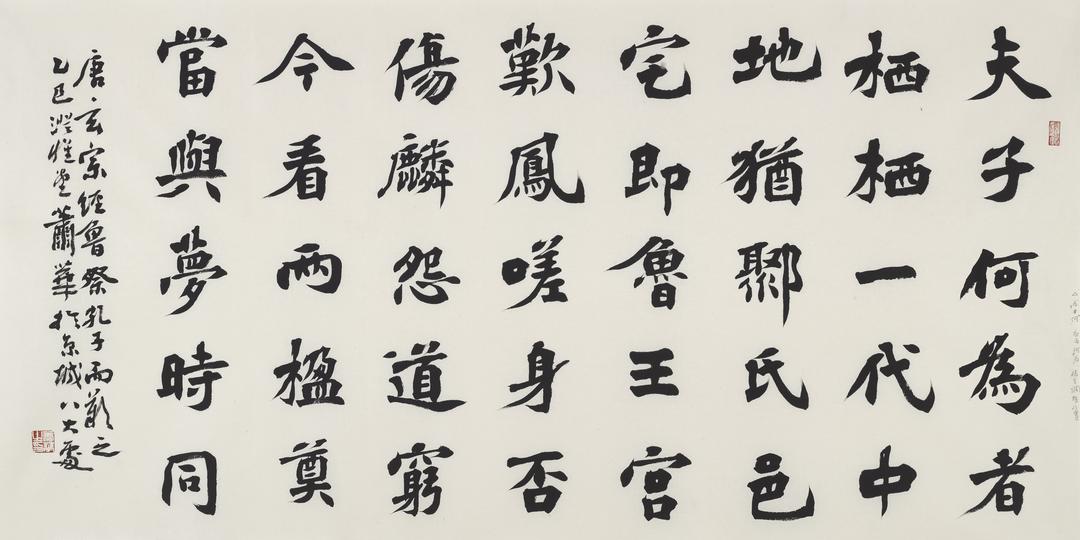 夫子何為者
栖栖一代中
地猶鄹氏邑
宅即魯王宮
歎鳳嗟身否
傷麟怨道窮
今看兩楹奠
當與夢時同
唐·玄宗經魯祭孔子而歎之
乙巳澄惟堂蕭華於京城八大處